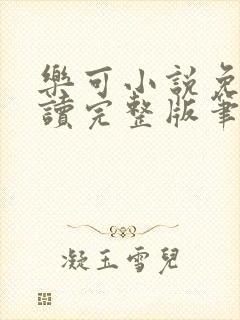 樂可小說免
讀完整版筆
凝玉雪兒